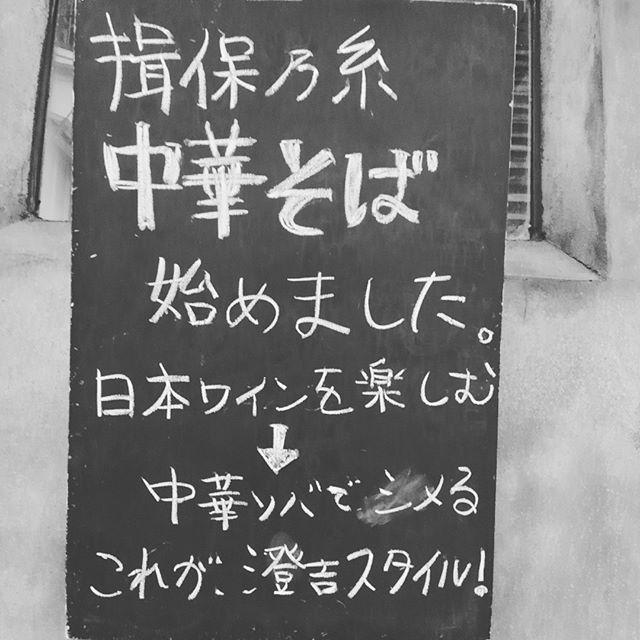 揖保乃糸
中華そば
始めました。
日本ワインを楽しむ
↓
中華ソバでシメる
これが、澄吉スタイル!